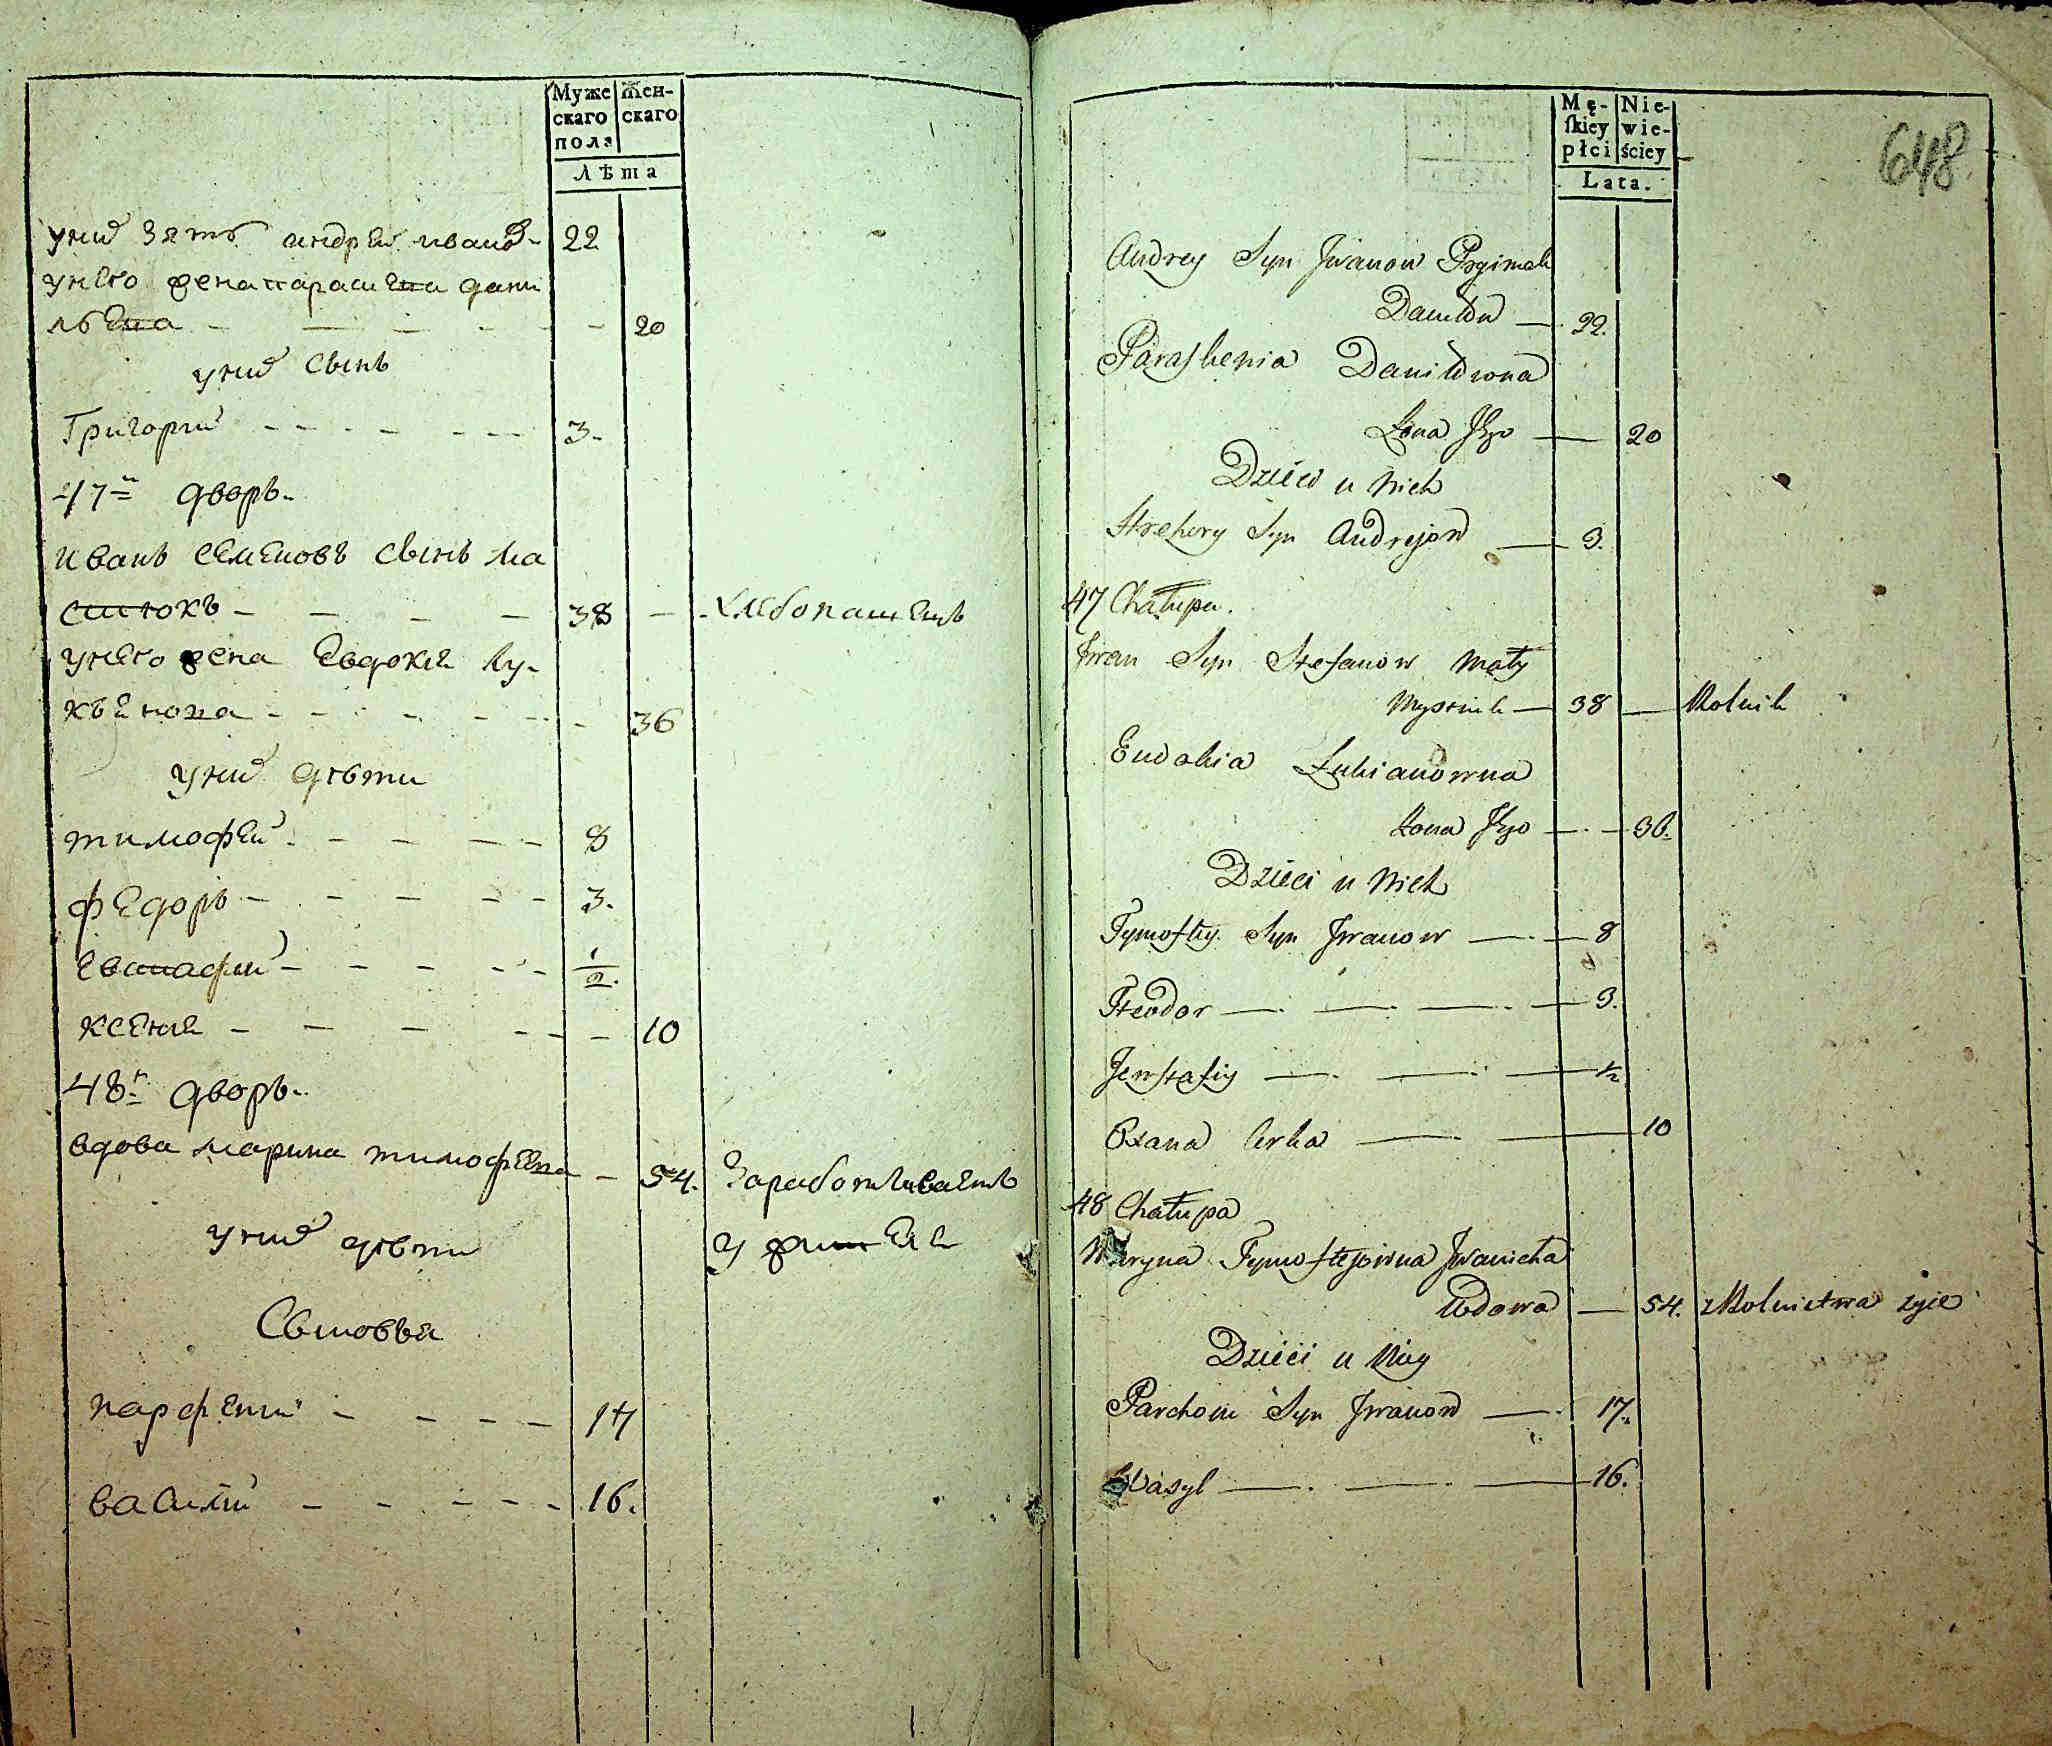 Муже
скаго
пола
Жен-
скаго
лѣта
у них зять андрей иванов 22
у него жена парасковия дани
- - - - 20
у них сынъ
Григорий - - - - - - 3.
47й дворъ.
иванъ семеновъ сынъ ма
- - - - 38 - хлебопашецъ
у него жена Евдокия лу-
къянова - - - - - - 36
у них дѣти
тимофей - - - - - 8
федоръ - - - - - 3.
евстафий - - - - - 1/2.
ксения - - - - - - 10
48й дворъ.
вдова марина тимофеева - 54. Зарабатываетъ
у них дѣти
Сыновья
парфений - - - - - 17
василий - - - - - 16.
Mę-
skiey
płci
Nie-
wie-
ściey
Lata.
648
Andrey Syn Jwanow Prziymak
Daniłow — 22.
Paraskewia Daniłowna
Żona Jego — 20
Dzieci u Nich
Hrehory Syn Andrejow — 3.
47 Chałupa.
Jwan Syn Stefanow Mały
— 38 — Rolnik
Eudokia Łukianowna
Żona Jego — — 36.
Dzieci u Nich
Tymoftey Syn Jwanow — — 8
Fteodor — — — — 3.
Jewstafiy — — — 1/2
Oxana Corka — — 10
48 Chałupa
Maryna Tymoftejowna Jwanicha
Wdowa — 54. z Rolnictwa żyie
Dzieci u Niey
Parchom Syn Jwanow — 17.
Wasyl — — — 16.